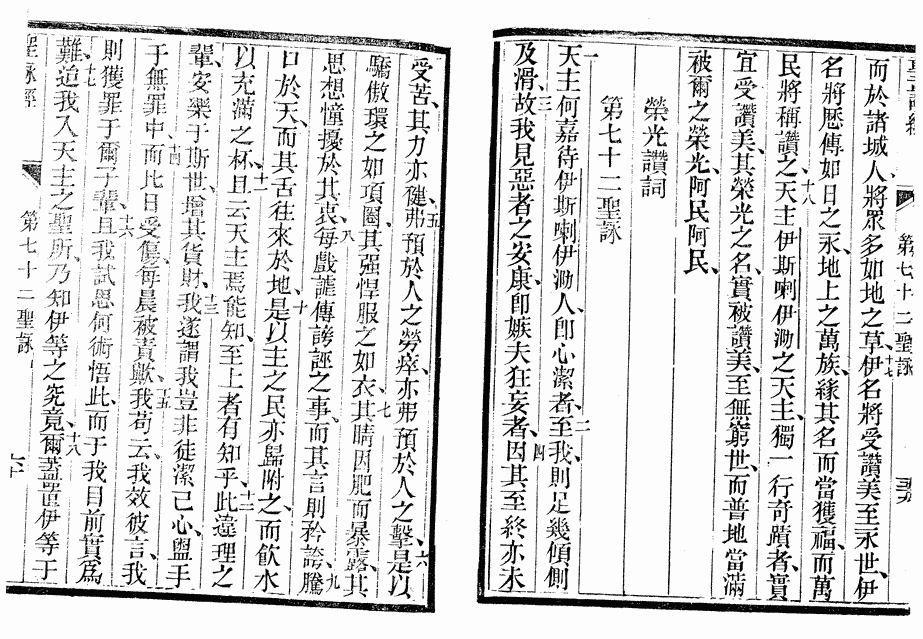 聖詠經
第七十二聖詠
五十九
而於諸城人、將衆多如地之草、十七伊名將受讚美至永世、伊
名將歷傳如日之永、地上之萬族、緣其名而當獲福、而萬
民將稱讚之、十八天主伊斯喇伊泐之天主、獨一行奇蹟者、實
宜受讚美、其榮光之名、實被讚美、至無窮世、而普地當滿
被爾之榮光、阿民阿民、
榮光讚詞
第七十二聖詠
一天主何嘉待伊斯喇伊泐人、卽心潔者、二至我、則足幾傾側
及滑、三故我見惡者之安康、卽嫉夫狂妄者、四因其至終亦未
受苦、其力亦健、五弗預於人之勞瘁、亦弗預於人之擊、六是以
驕傲環之如項圈、其強悍服之如衣、七其睛因肥而暴露、其
思想憧擾於其衷、八每戲謔傳謗誣之事、而其言則矜誇、九騰
口於天、而其舌往來於地、十是以主之民亦歸附之、而飮水
以充滿之杯、十一且云天主焉能知、至上者有知乎、十二此違理之
輩、安樂于斯世、增其貨財、十三我遂謂我豈非徒潔己心、盥手
于無罪中、十四而比日受傷、每晨被責歟、十五我苟云、我效彼言、我
則獲罪于爾子輩、十六且我試思何術悟此、而于我目前實爲
難、十七迨我入天主之聖所、乃知伊等之究竟、十八爾蓋置伊等于
聖詠經
第七十二聖詠
六十